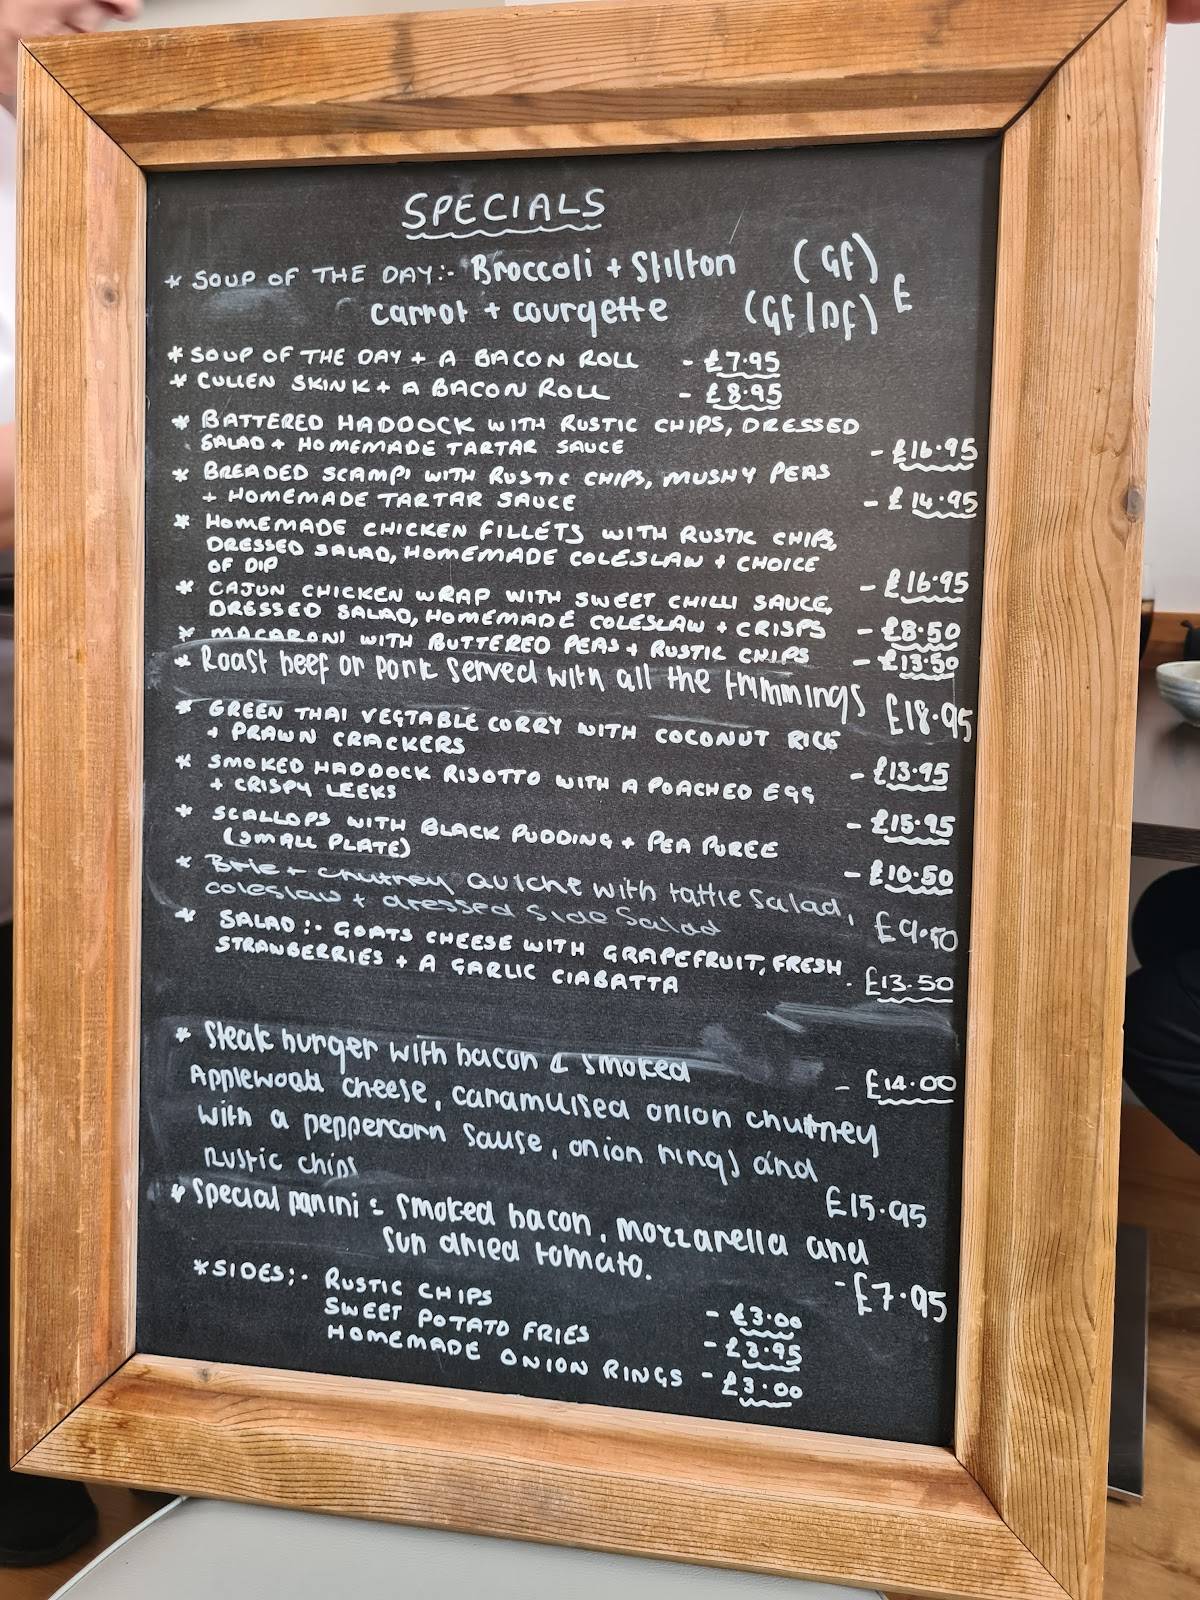 SPECIALS
* SOUP OF THE DAY:- Broccoli + Stilton (GF)
carrot + courgette (GF/DF) E
* SOUP OF THE DAY + A BACON ROLL - £7.95
* CULLEN SKINK + A BACON ROLL - £8.95
* BATTERED HADDOCK WITH RUSTIC CHIPS, DRESSED
SALAD + HOMEMADE TARTAR SAUCE - £16.95
* BREADED SCAMPI WITH RUSTIC CHIPS, MUSHY PEAS
+ HOMEMADE TARTAR SAUCE - £14.95
* HOMEMADE CHICKEN FILLETS WITH RUSTIC CHIPS,
DRESSED SALAD, HOMEMADE COLESLAW + CHOICE
OF DIP - £16.95
* CAJUN CHICKEN WRAP WITH SWEET CHILLI SAUCE,
DRESSED SALAD, HOMEMADE COLESLAW + CRISPS - £8.50
* MACARONI WITH BUTTERED PEAS + RUSTIC CHIPS - £13.50
* Roast beef or pork served with all the trimmings £18.95
* GREEN THAI VEGTABLE CURRY WITH COCONUT RICE
+ PRAWN CRACKERS - £13.95
* SMOKED HADDOCK RISOTTO WITH A POACHED EGG
+ CRISPY LEEKS - £15.95
* SCALLOPS WITH BLACK PUDDING + PEA PUREE
(SMALL PLATE) - £10.50
* Brie + chutney quiche with tattie salad,
coleslaw + dressed side salad £9.50
* SALAD:- GOATS CHEESE WITH GRAPEFRUIT, FRESH
STRAWBERRIES + A GARLIC CIABATTA - £13.50
* Steak burger with bacon & smoked - £14.00
Applewood cheese, caramulised onion chutney
with a peppercorn sause, onion rings and
rustic chips £15.95
* Special panini = smoked bacon, mozzarella and
sun dried tomato. - £7.95
* SIDES:- RUSTIC CHIPS - £3.00
SWEET POTATO FRIES - £3.95
HOMEMADE ONION RINGS - £3.00